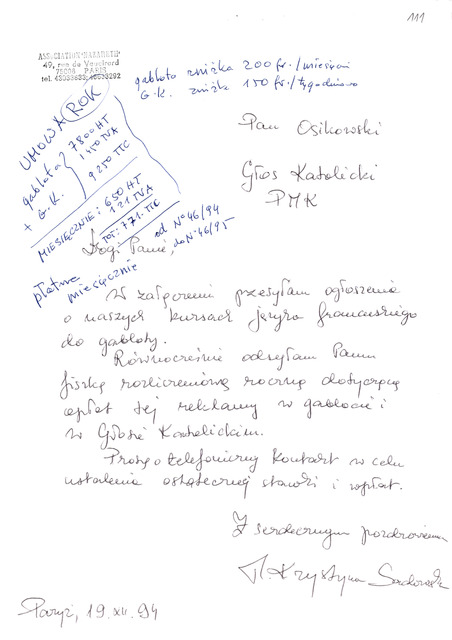 111
ASSOCIATION NAZARETH
49, rue de Vaugirard
75006 PARIS
gablota zniżka 200 fr./miesięcznie
G.K. zniżka 150 fr./tygodniowo
UMOWA ROK
gablota
+ G.K.
7800 HT
1450 TVA
9250 TTC
MIESIĘCZNIE: 650 HT
121 TVA
TOT: 771 TTC
od N° 46/94
do N° 46/95
płatne
miesięcznie
Pan Osikowski
Głos Katolicki
PMK
Drogi Panie,
W załączeniu przesyłam ogłoszenia
o naszych kursach języka francuskiego
do gabloty.
Równocześnie odsyłam Panu
fiszkę rozliczeniową roczną dotyczącą
opłat tej reklamy w gablocie i
w Głosie Katolickim.
Proszę o telefoniczny kontakt w celu
ustalenia ostatecznej stawki i wpłat.
Z serdecznym pozdrowieniem
Krystyna
Paryż, 19.XII.94